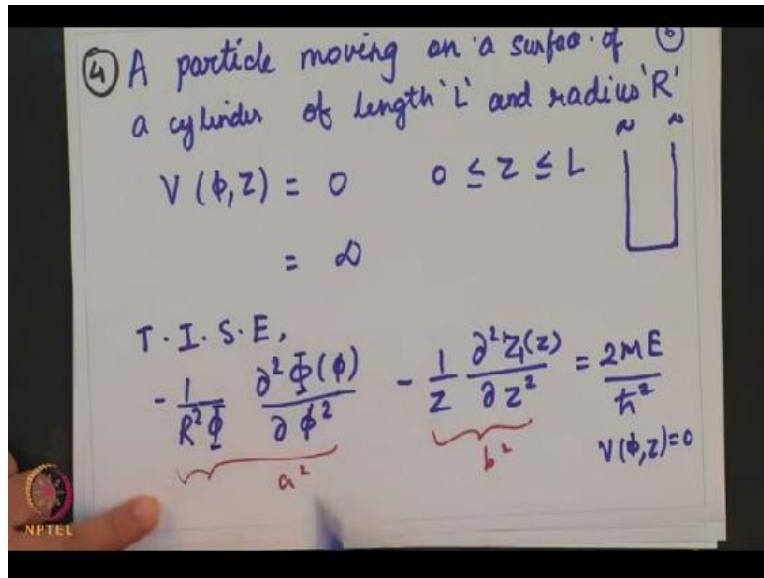 ④ A particle moving on a surface of ⑥
a cylinder of length 'L' and radius 'R'
V(ϕ,z) = 0 0 ≤ z ≤ L
= ∞
T.I.S.E,
- 1/(R²Φ) ∂²Φ(ϕ)/∂ϕ² - 1/Z ∂²Z(z)/∂z² = 2ME/ħ²
a² b² V(ϕ,z)=0
NPTEL